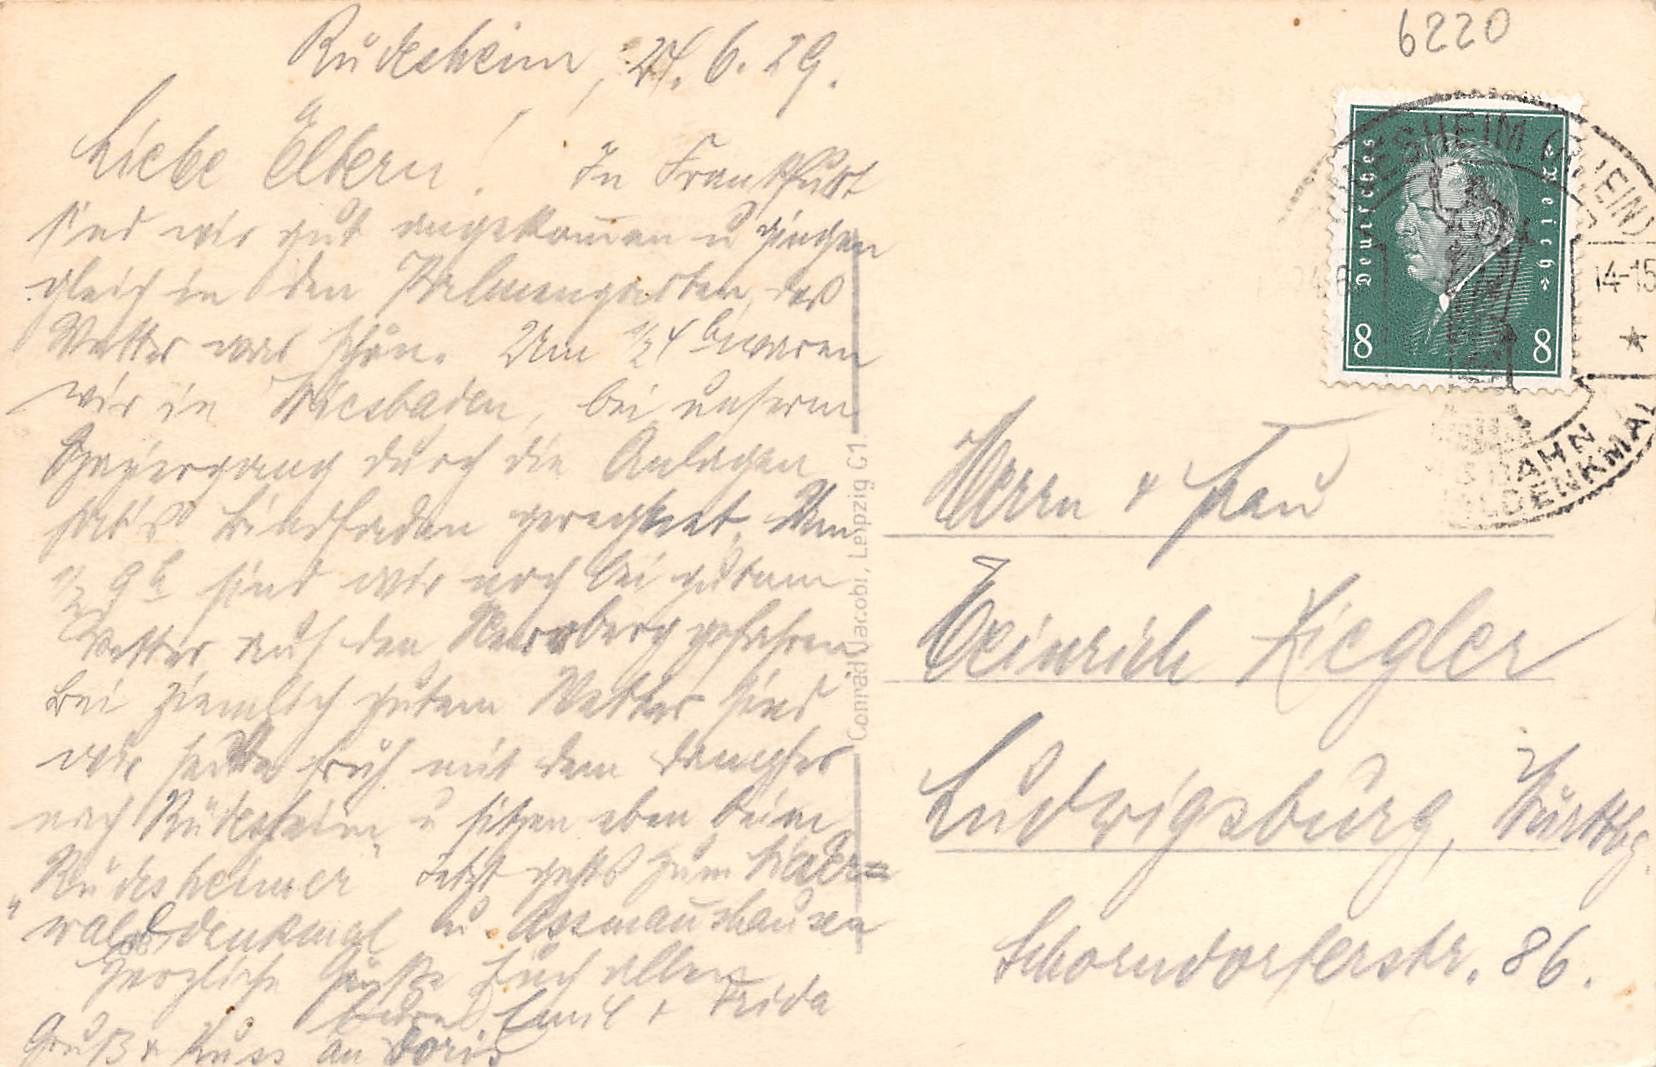 6220
Rüdesheim, 24. 6. 29.
Liebe Eltern! In Frankfurt
sind wir gut angekommen u gingen
gleich in den Palmengarten, das
Wetter war schön. Um 1/2 4 h waren
wir in Wiesbaden, bei unserm
Spaziergang durch die Anlagen
hat's Bindfaden geregnet. Um
1/2 9 h sind wir noch bei gutem
Wetter auf den Neroberg gefahren
Bei ziemlich gutem Wetter sind
wir heute früh mit dem Dampfer
nach Rüdesheim u sitzen eben beim
"Rüdesheimer" Jetzt gehts zum Nieder=
walddenkmal u Assmanshausen
Herzliche Grüße Euch allen
Eure Emil + Frida
Gruß & Kuss an Doris
Conrad Jacobi, Leipzig C1.
Deutsches Reich
8 8
RÜDESHEIM (RHEIN)
14-15
Herrn & Frau
Heinrich Ziegler
Ludwigsburg, Württbg.
Schorndorferstr. 86.